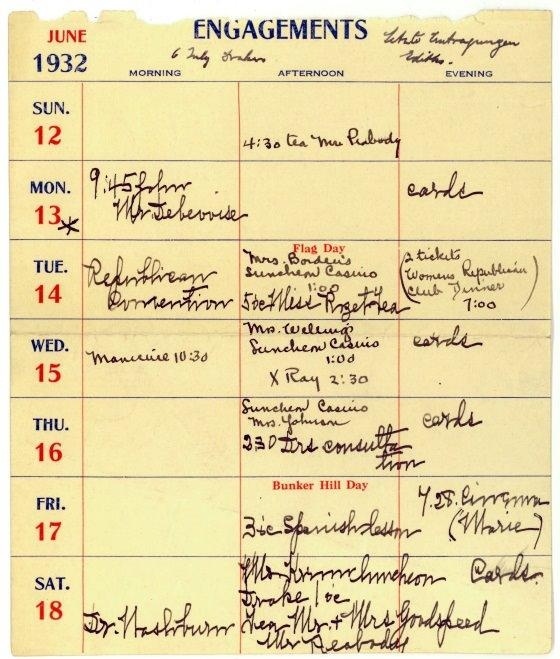 JUNE
1932
ENGAGEMENTS
6 July
MORNING AFTERNOON EVENING
SUN.
12
4:30 tea Mrs Peabody
MON.
13
9:45 John
Mr Debevoise
cards
TUE.
14
Republican
Convention
Flag Day
Mrs. Borden's
Luncheon Casino
1:00
5oc Miss Roget Tea
(2 tickets
Womens Republican
Club Dinner
7:00)
WED.
15
Manicure 10:30
Mrs. Welling's
Luncheon Casino
1:00
X Ray 2:30
cards
THU.
16
Luncheon Casino
Mrs. Johnson
230 Drs consulta
tion
cards
FRI.
17
Bunker Hill Day
3oc Spanish lesson
7.28. Cinema
(Marie)
SAT.
18
Dr. Washburn
luncheon
Drake 1 oc
Tea Mr. + Mrs Goodspeed
Mr Peabody
Cards.